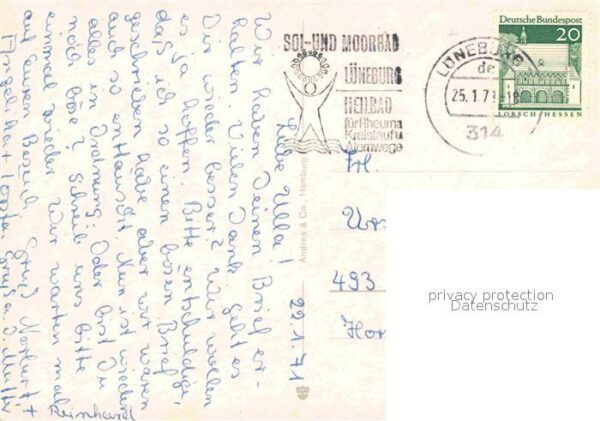 Liebe Ulla!
Wir haben Deinen Brief er-
halten. Vielen Dank. Geht es
es wieder besser? Wir wollen
es ja hoffen. Bitte entschuldige,
daß ich so einen bösen Brief
geschrieben habe aber wir waren
auch so enttäuscht. Nun ist wieder
alles in Ordnung. Oder bist Du
noch böse? Schreib uns bitte
einmal wieder. Wir warten mal
auf euren Besuch. Gruß Norbert +
Reinhard
22.1.71
Andres & Co., Hamburg
SOL-UND MOORBAD
LÜNEBURG
HEILBAD
für Rheuma
Kreislauf u
Atemwege
LÜNEBURG
de
25.1.71-18
314
Deutsche Bundespost
20
LORSCH/HESSEN
Frl.
493
Hor
privacy protection
Datenschutz